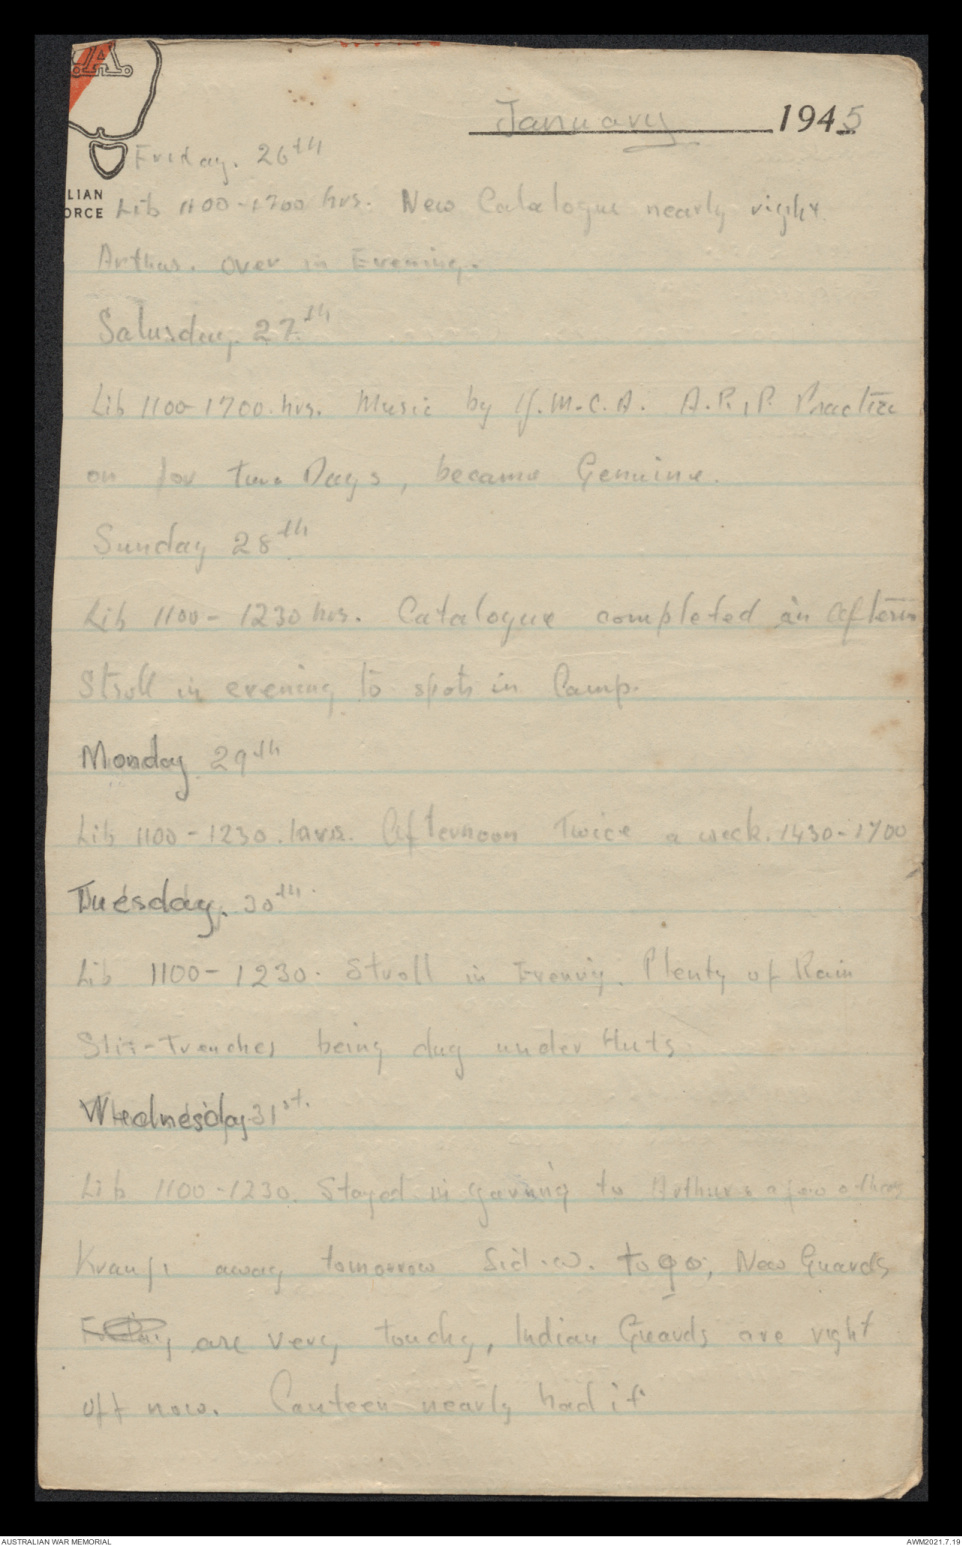 January 1945
Friday. 26th
LIAN
ORCE
Lib 1100-1700 hrs. New Catalogue nearly right
Arthur. over in Evening.
Saturday. 27th
Lib 1100-1700. hrs. Music by Y.M.C.A. A.R.P. Practice
on for two Days, became Genuine.
Sunday 28th
Lib 1100-1230 hrs. Catalogue completed in aftern
Stroll in evening to spots in Camp.
Monday 29th
Lib 1100-1230. hrs. Afternoon Twice a week. 1430-1700
Tuesday. 30th.
Lib 1100-1230. Stroll in Evening. Plenty of Rain
Slit-Trenches being dug under Huts
Wednesday 31st.
Lib 1100-1230. Stayed in to Arthurs a few others
Kranji away tomorrow Sid.W. to go, New Guards
are very touchy, Indian Guards are right
off now. Canteen nearly had it
AUSTRALIAN WAR MEMORIAL
AWM2021.7.19